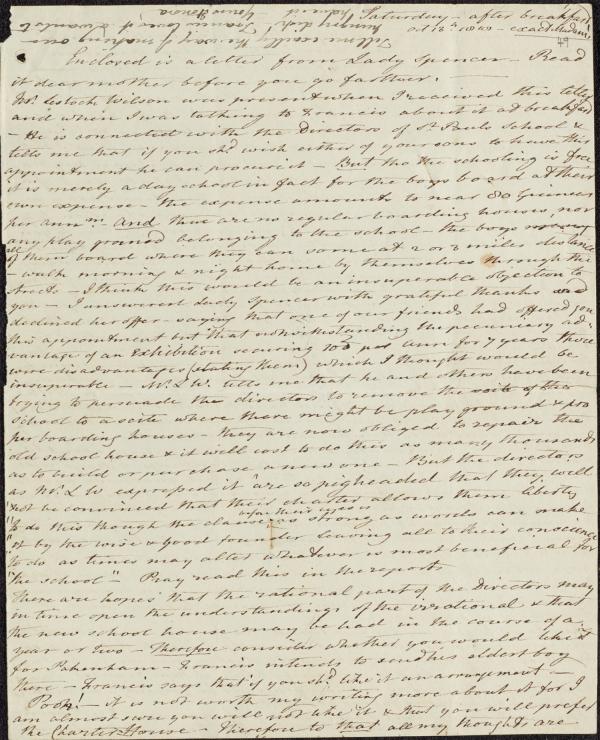 Saturday - after breakfast
Enclosed is a letter from Lady Spencer - Read
it dear mother before you go farther.
Mr. Lestock Wilson was present when I received this letter
and when I was talking to Francis about it at breakfast
- He is connected with the directors of St Pauls School &
tells me that if you shd wish either of your sons to have this
appointment he can procure it - But tho the schooling is free
it is merely a day school in fact for the boys board at their
own expense - the expense amounts to near 80 Guineas
per annm - And there are no regular boarding houses, nor
any play ground belonging to the school - the boys
of them board where they can some at 2 or 3 miles distance
- walk morning & night home by themselves through the
streets - I think this would be an insuperable objection to
you - I answered Lady Spencer with grateful thanks and
declined her offer - saying that one of our friends had offered you
this appointment but that notwithstanding the pecuniary ad-
vantage of an Exhibition securing 100 per ann for 7 years there
were disadvantages (stating them) which I thought would be
insuperable - Mr. L W. tells me that he and others have been
trying to persuade the directors to remove the scite of the
School to a scite where there might be play ground & pro
per boarding houses - they are now obliged to repair the
old school house & it will cost to do this as many thousands
as to build or purchase a new one - But the directors
as Mr. L W expressed it are so pigheaded that they will
not be convinced that their charter allows them liberty
"to do this though the clause is as strong as words can make
"it by the wise & good founder leaving all to their conscience
"to do as times may alter whatever is most beneficial for
"the school" - Pray read this in the reports
There are hopes that the rational part of the directors may
in time open the understandings of the irrational & that
the new school house may be had in the course of a
year or two - Therefore consider whether you would like it
for Pakenham - Francis intends to send his eldest boy
there - Francis says that if you shd like it an arrangement -
Pooh! - it is not worth my writing more about it for I
am almost sure you will not like it & that you will prefer
the Charter House - Therefore to that all my thoughts are